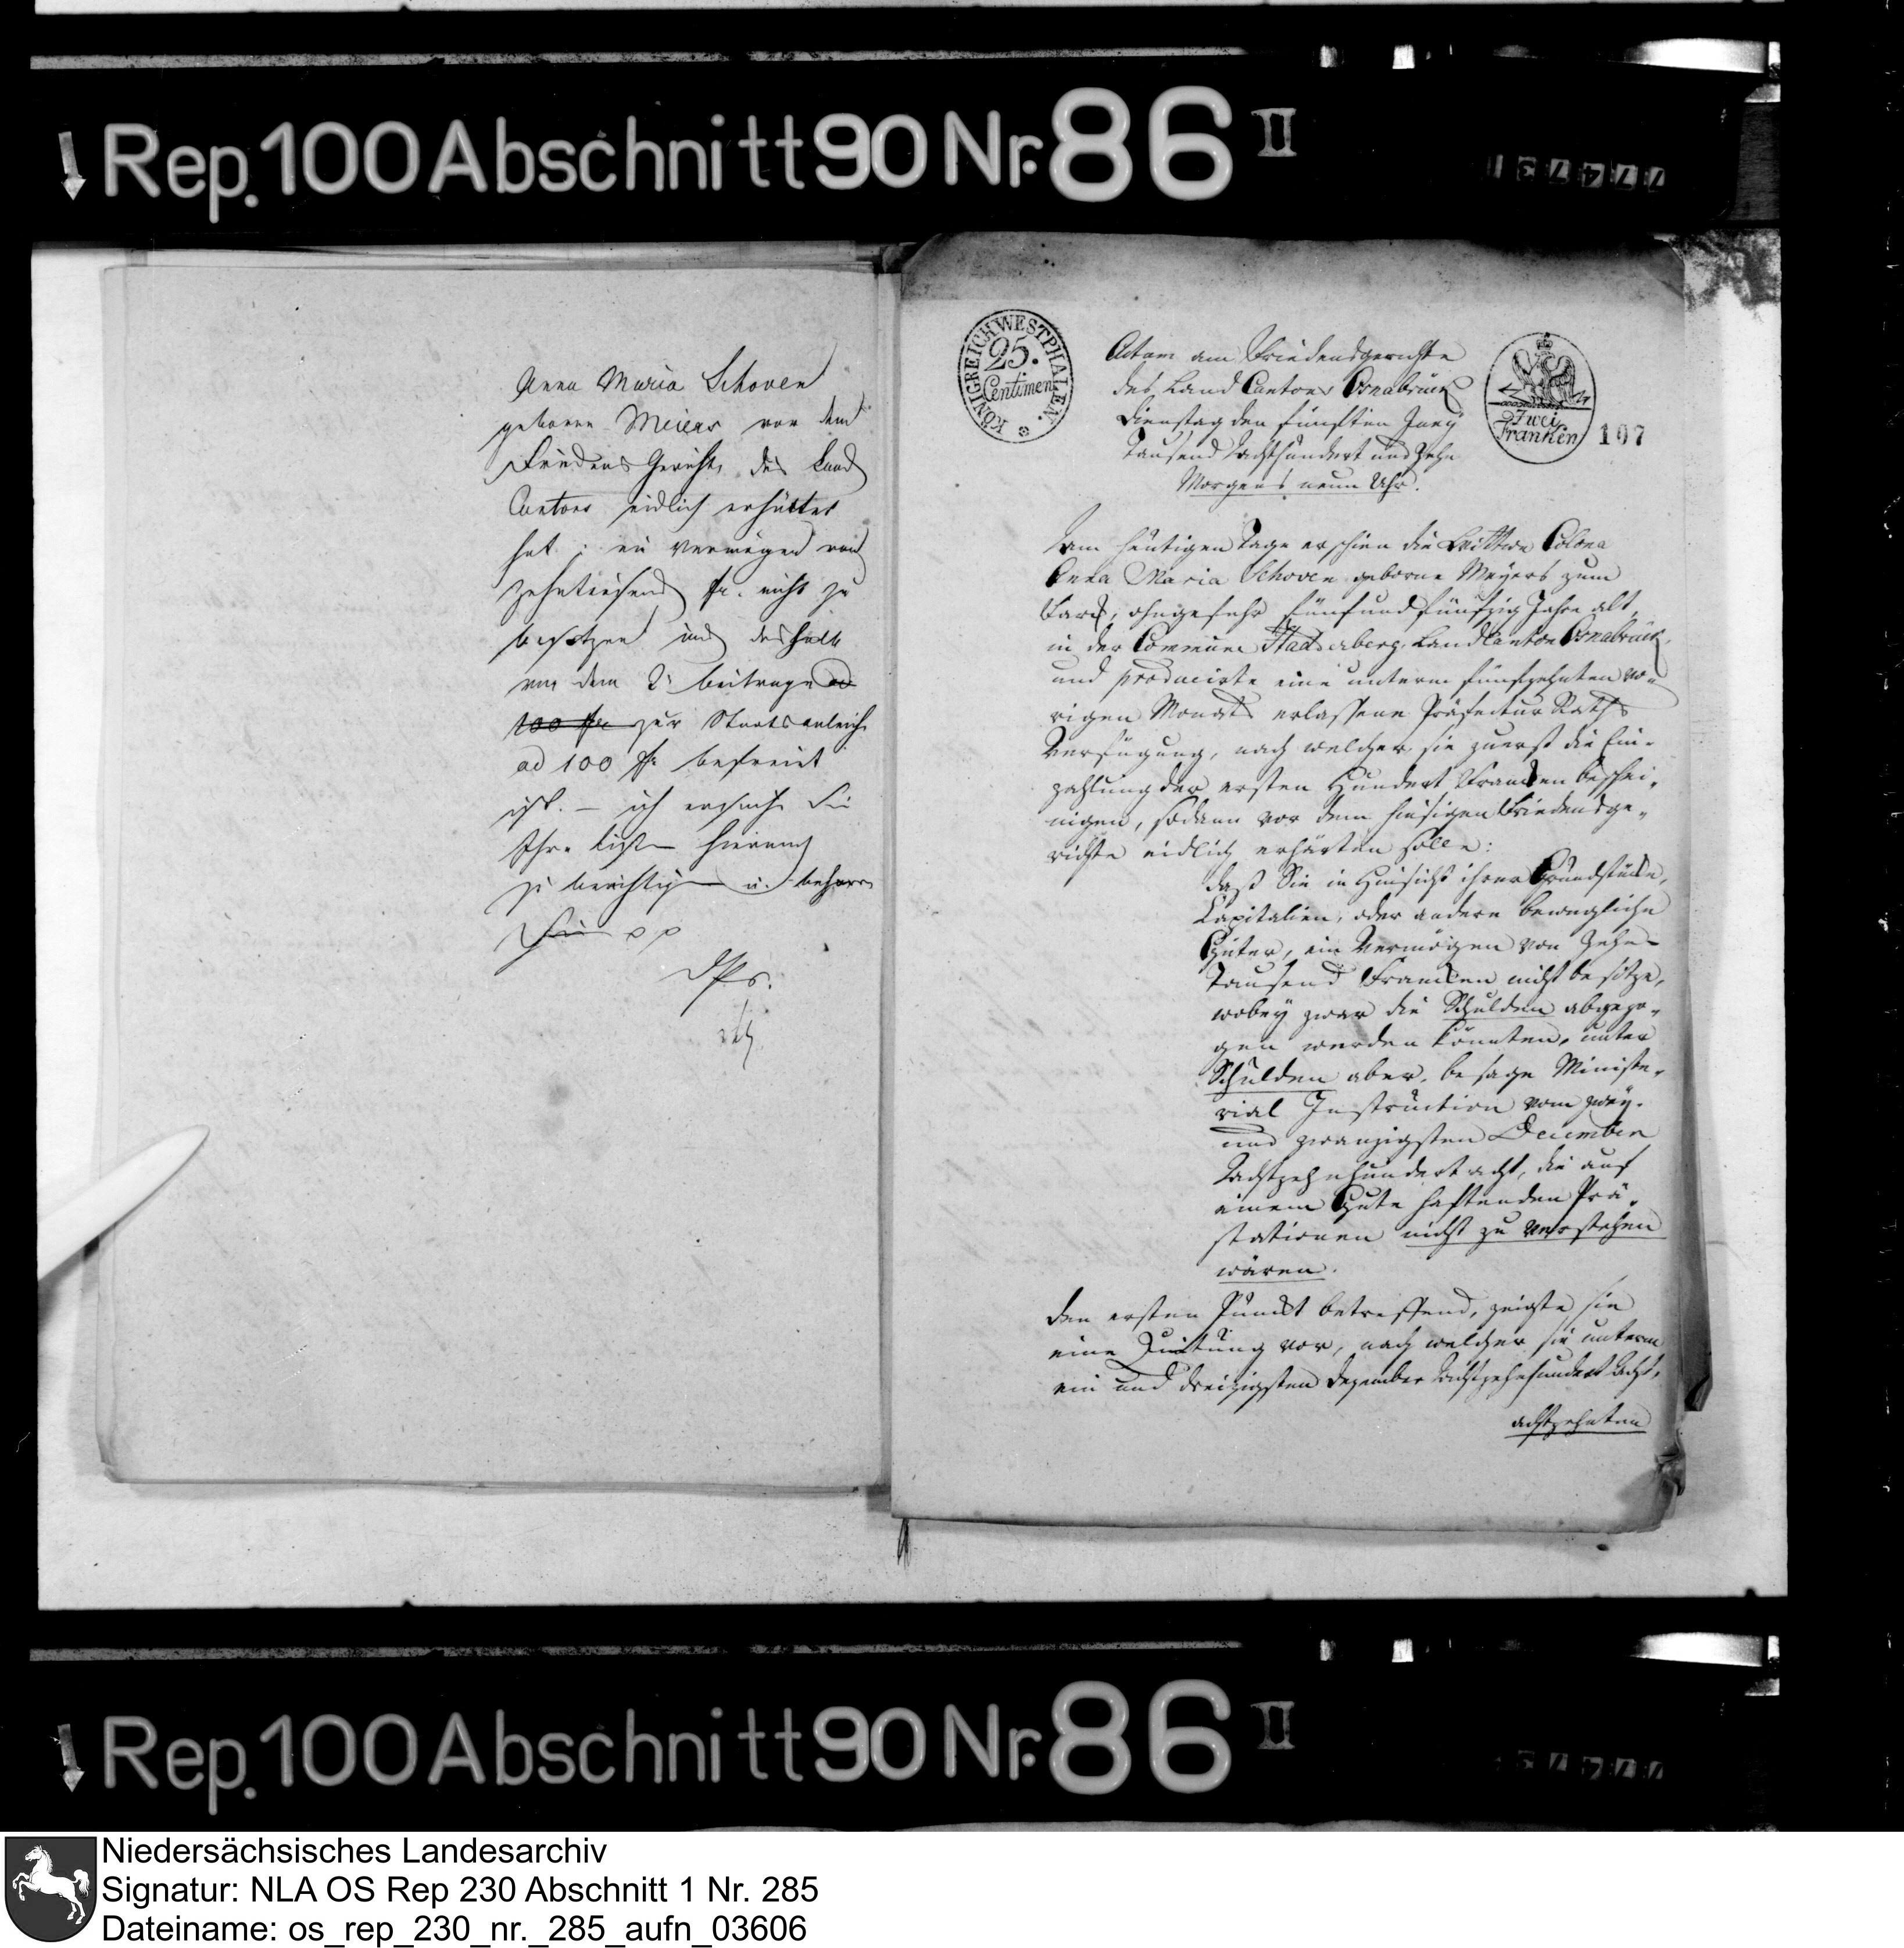 Rep. 100 Abschnitt 90 Nr. 86 II
Anna Maria Schoven
geborne Meiers vor dem
Friedens Gericht des Land
Cantons eidlich erhärtet
hat: ein Vermögen von
zehntausend fr. nicht zu
besitzen und deshalb
von dem 2n beitrage ad
100 fr zur Staatsanleihe
ad 100 fr befreiet
ist. — ich ersuche Sie
Ihre Liste hiernach
zu berichtigen u.
Sie p p
KÖNIGREICH WESTPHALEN.
25.
Centimen
Zwei
Franken
107
Actum am Friedensgerichte
des Land Cantons Osnabrück
Dienstag den fünften Juny
Tausend Achthundert und Zehn
Morgens neun Uhr.
Am heutigen Tage erschien die Wittwe Colona
Anna Maria Schoven geborne Meyers zum
ohngefehr fünf und fünfzig Jahre alt,
in der Commune Landcanton Osnabrück,
und producirte eine unterm fünfzehnten vo-
rigen Monats erlassene Präfectur Raths
Verfügung, nach welcher sie zuerst die Ein-
zahlung der ersten Hundert Francken beschei-
nigen, sodann vor dem hiesigen Friedensge-
richte eidlich erhärten solle:
daß Sie in Hinsicht ihrer Grundstücke,
Capitalien, oder andere bewegliche
Güter, ein Vermögen von Zehn-
Tausend Francken nicht besitze,
wobey zwar die Schulden abgezo-
gen werden könnten, unter
Schulden aber, besage Ministe-
rial Instruction vom zwey-
und zwanzigsten December
Achtzehnhundert acht, die auf
einem Gute haftenden Prä-
stationen nicht zu verstehen
wären.
Den ersten Punckt betreffend, zeigte sie
eine Quittung vor, nach welcher sie unterm
ein und dreizigsten Dezember Achtzehnhundert Acht,
achtzehnten
Rep. 100 Abschnitt 90 Nr. 86 II
Niedersächsisches Landesarchiv
Signatur: NLA OS Rep 230 Abschnitt 1 Nr. 285
Dateiname: os_rep_230_nr._285_aufn_03606